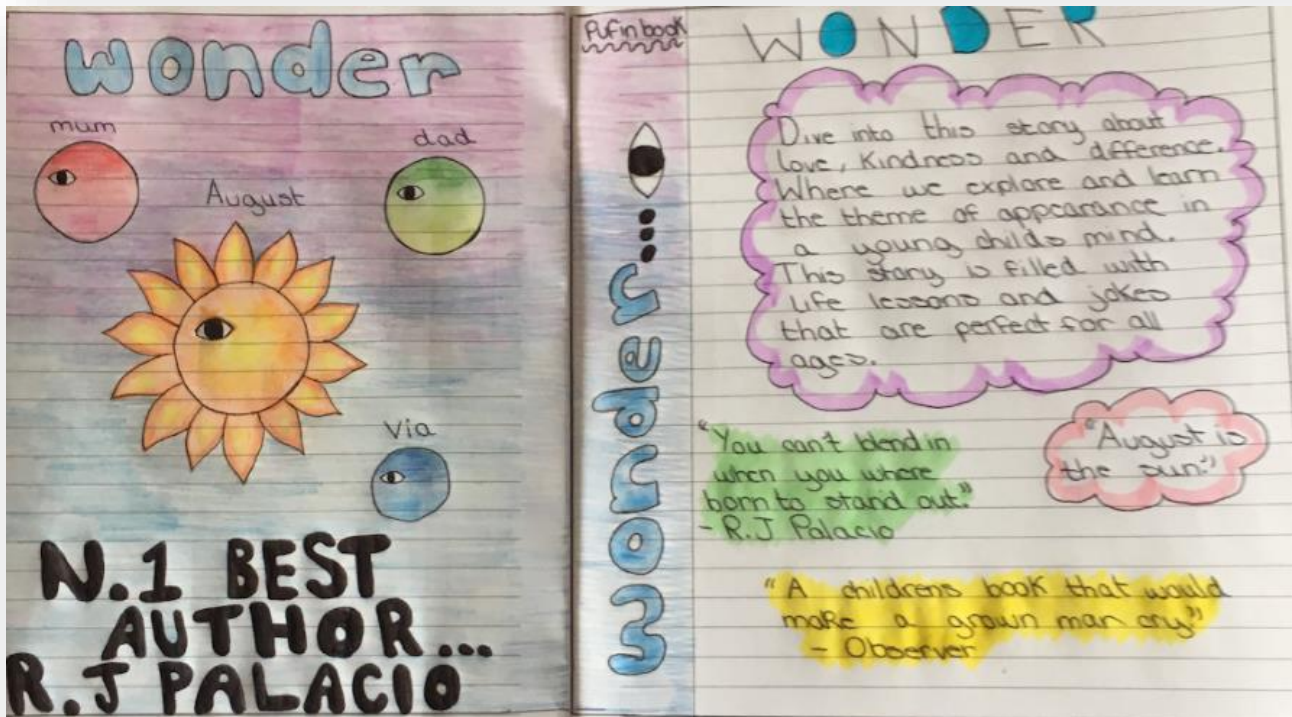 wonder
mum
dad
August
Via
N.1 BEST
AUTHOR...
R.J PALACIO
Pufin book
wonder...
WONDER
Dive into this story about
love, Kindness and difference.
Where we explore and learn
the theme of appearance in
a young childs mind.
This story is filled with
life lessons and jokes
that are perfect for all
ages.
"You can't blend in
when you where
born to stand out."
- R.J Palacio
"August is
the sun."
"A childrens book that would
make a grown man cry"
- Observer